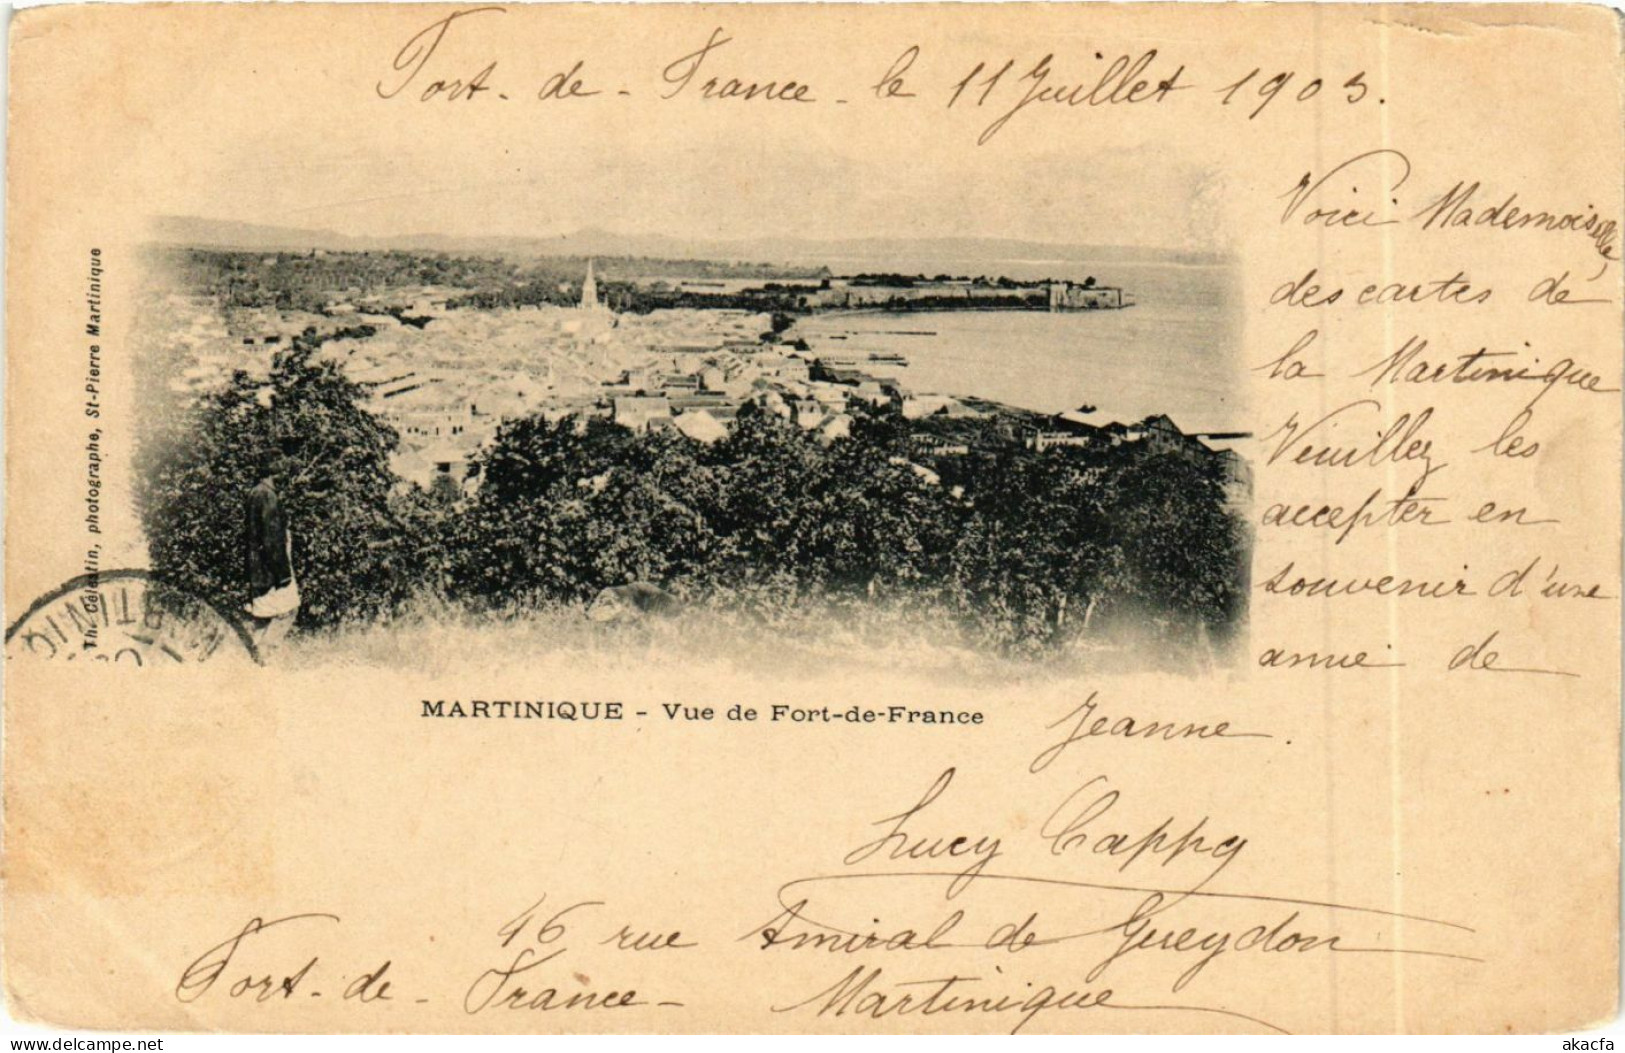 Fort-de-France-le 11 Juillet 1903.
Voici Mademoiselle,
des cartes de
la Martinique
Veuillez les
accepter en
souvenir d'une
amie de
Jeanne.
Th. Célestin, photographe, St-Pierre Martinique
MARTINIQUE - Vue de Fort-de-France
Lucy Cappy
46 rue Amiral de Gueydon
Fort-de-France- Martinique
delcampe.net
akacfa